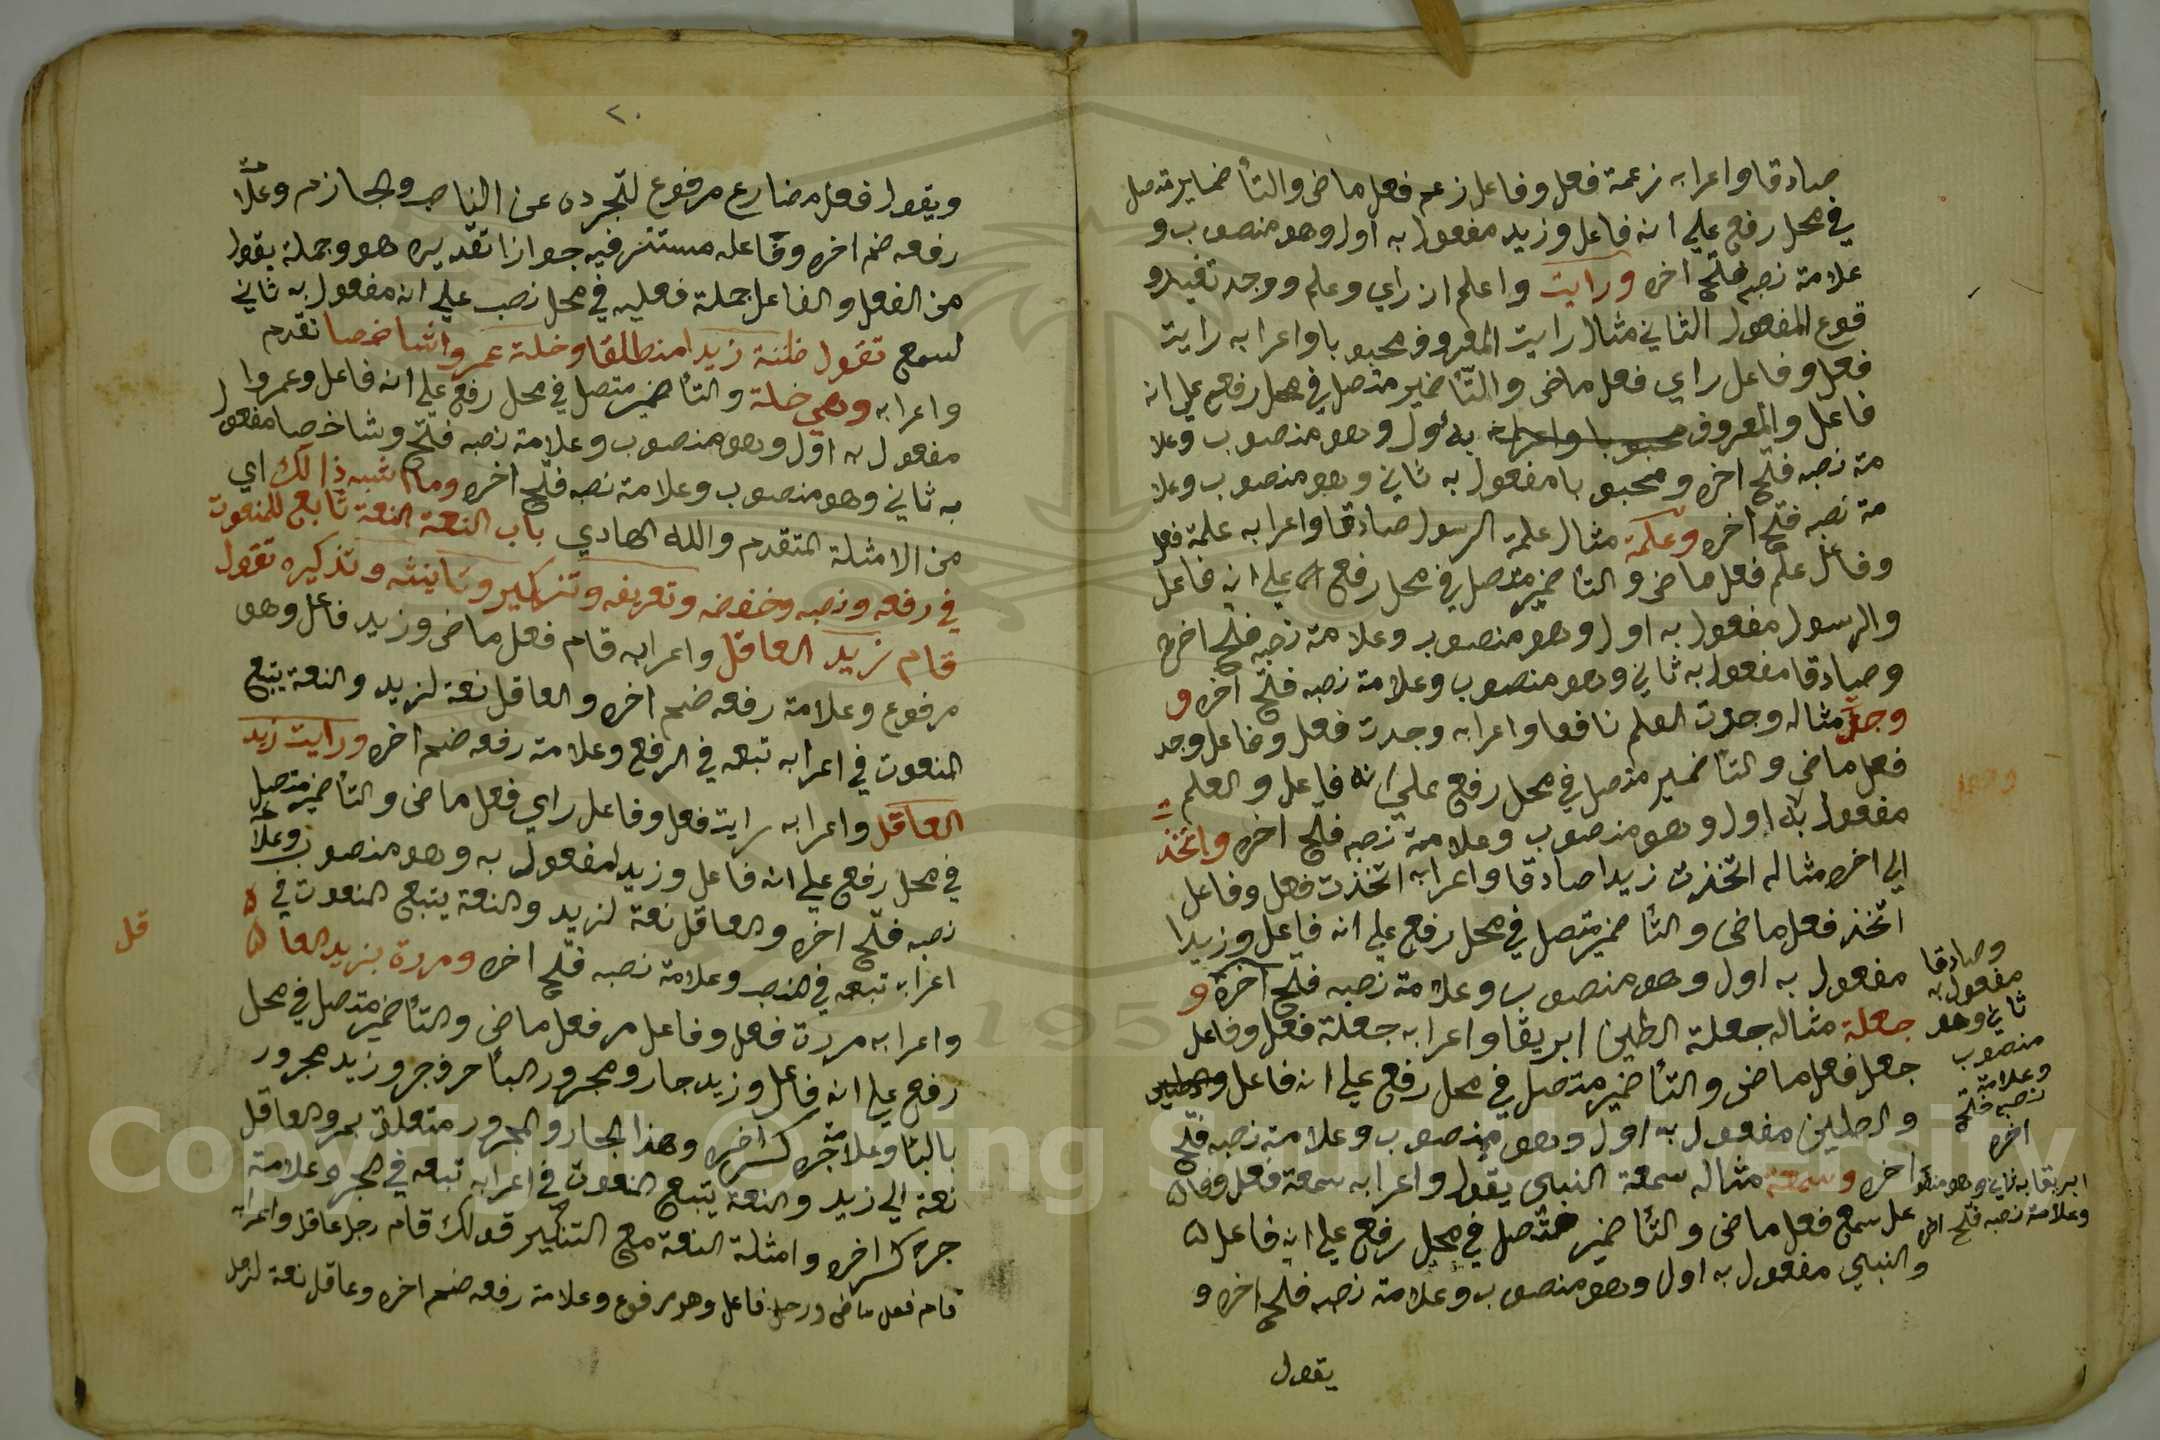 صادقا واعرابه زعمة فعل وفاعل زعم فعل ماضى والتأ ضماير متصل
في محل رفع علي انه فاعل وزيد مفعول به اول وهو منصوب و
علامة نصبه فتح اخره ورايت واعلم ان راي وعلم ووجد تفيد و
قوع المفعول الثاني مثال رايت المعروف محبوبا واعرابه رايت
فعل وفاعل راي فعل ماضى والتأ ضمير متصل في محل رفع علي انه
فاعل والمعروف محبوبا واعرابه به اول وهو منصوب وعلا
مة نصبه فتح اخره ومحبوبا مفعول به ثاني وهو منصوب وعلا
مة نصبه فتح اخره وعلمة مثال علمة الرسول صادقا واعرابه علمة فعل
وفاعل علم فعل ماضى والتأ ضمير متصل في محل رفع علي انه فاعل
والرسول مفعول به اول وهو منصوب وعلامة نصبه فتح اخره
وصادقا مفعول به ثاني وهو منصوب وعلامة نصبه فتح اخره و
وجد مثاله وجدت العلم نافعا واعرابه وجدت فعل وفاعل وجد
فعل ماضى والتأ ضمير متصل في محل رفع علي انه فاعل والعلم
مفعول به اول وهو منصوب وعلامة نصبه فتح اخره واتخذ
الي اخره مثاله اتخذت زيدا صادقا واعرابه اتخذت فعل وفاعل
اتخذ فعل ماضى والتأ ضمير متصل في محل رفع علي انه فاعل وزيدا
مفعول به اول وهو منصوب وعلامة نصبه فتح اخره و
جعلة مثاله جعلة الطين ابريقا واعرابه جعلة فعل وفاعل
جعل فعل ماضى والتأ ضمير متصل في محل رفع علي انه فاعل والطين
والطين مفعول به اول وهو منصوب وعلامة نصبه فتح
اخره وسمعة مثاله سمعة النبي يقول واعرابه سمعة فعل وفا
عل سمع فعل ماضى والتأ ضمير متصل في محل رفع علي انه فاعل
والنبي مفعول به اول وهو منصوب وعلامة نصبه فتح اخره و
يقول
وصادقا
مفعول به
ثاني وهو
منصوب
وعلامة
نصبه فتح
اخره
ابريقا به ثاني وهو منصو
وعلامة نصبه فتح اخره
٢٠
ويقول فعل مضارع مرفوع لتجرده عن الناصب والجازم وعلامة
رفعه ضم اخره وفاعله مستتر فيه جوازا تقديره هو وجملة يقول
من الفعل والفاعل جملة فعليه في محل نصب علي انه مفعول به ثاني
لسمع تقول ظننة زيدا منطلقا وخلة عمروا شاخصا تقدم
واعرابه وهي خلة والتأ ضمير متصل في محل رفع علي انه فاعل وعمروا
مفعول به اول وهو منصوب وعلامة نصبه فتح وشاخصا مفعول
به ثاني وهو منصوب وعلامة نصبه فتح اخره وما اشبه ذالك اي
من الامثلة المتقدم والله الهادي باب النعة النعة تابع للمنعوت
في رفعه ونصبه وخفضه وتعريفه وتنكير وتأنيثه وتذكيره تقول
قام زيد العاقل واعرابه قام فعل ماضى وزيد فاعل وهو
مرفوع وعلامة رفعه ضم اخره والعاقل نعة لزيد والنعة يتبع
المنعوت في اعرابه تبعه في الرفع وعلامة رفعه ضم اخره ورايت زيد
العاقل واعرابه رايت فعل وفاعل راي فعل ماضى والتأ ضمير متصل
في محل رفع علي انه فاعل وزيدا مفعول به وهو منصوب وعلامة
نصبه فتح اخره والعاقل نعة لزيد والنعة يتبع المنعوت في
اعرابه تبعه في النصب وعلامة نصبه فتح اخره ومررة بزيد العا
قل
واعرابه مررت فعل وفاعل مر فعل ماضى والتأ ضمير متصل في محل
رفع علي انه فاعل وزيد جار ومجرور البأ حرف جر وزيد مجرور
بالبا وعلامة جره كسر اخره وهذا الجار والمجرور متعلق بمر والعاقل
نعة الي زيد والنعة يتبع المنعوت في اعرابه تبعه في الجر وعلامة
جره كسر اخره وامثلة النعة مع التنكير قولك قام رجل عاقل واعرابه
قام فعل ماضى ورجل فاعل وهو مرفوع وعلامة رفعه ضم اخره وعاقل نعة لرجل
Copyright © King Saud University
195